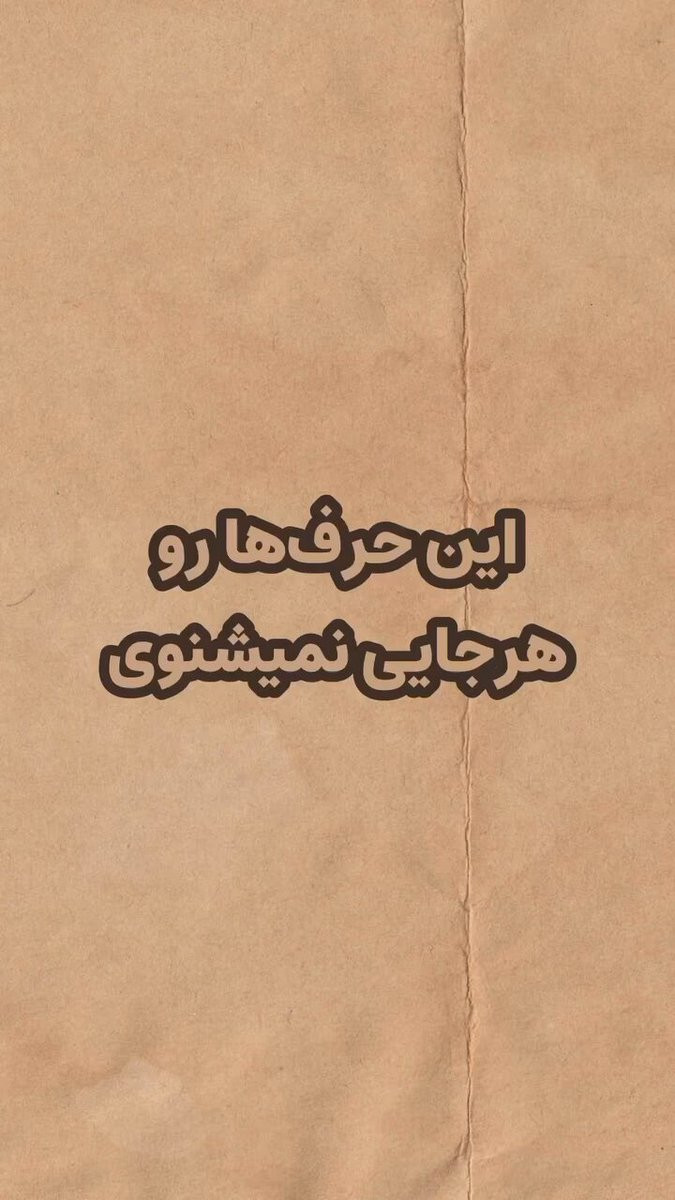 این حرف‌ها رو
هرجایی نمیشنوی